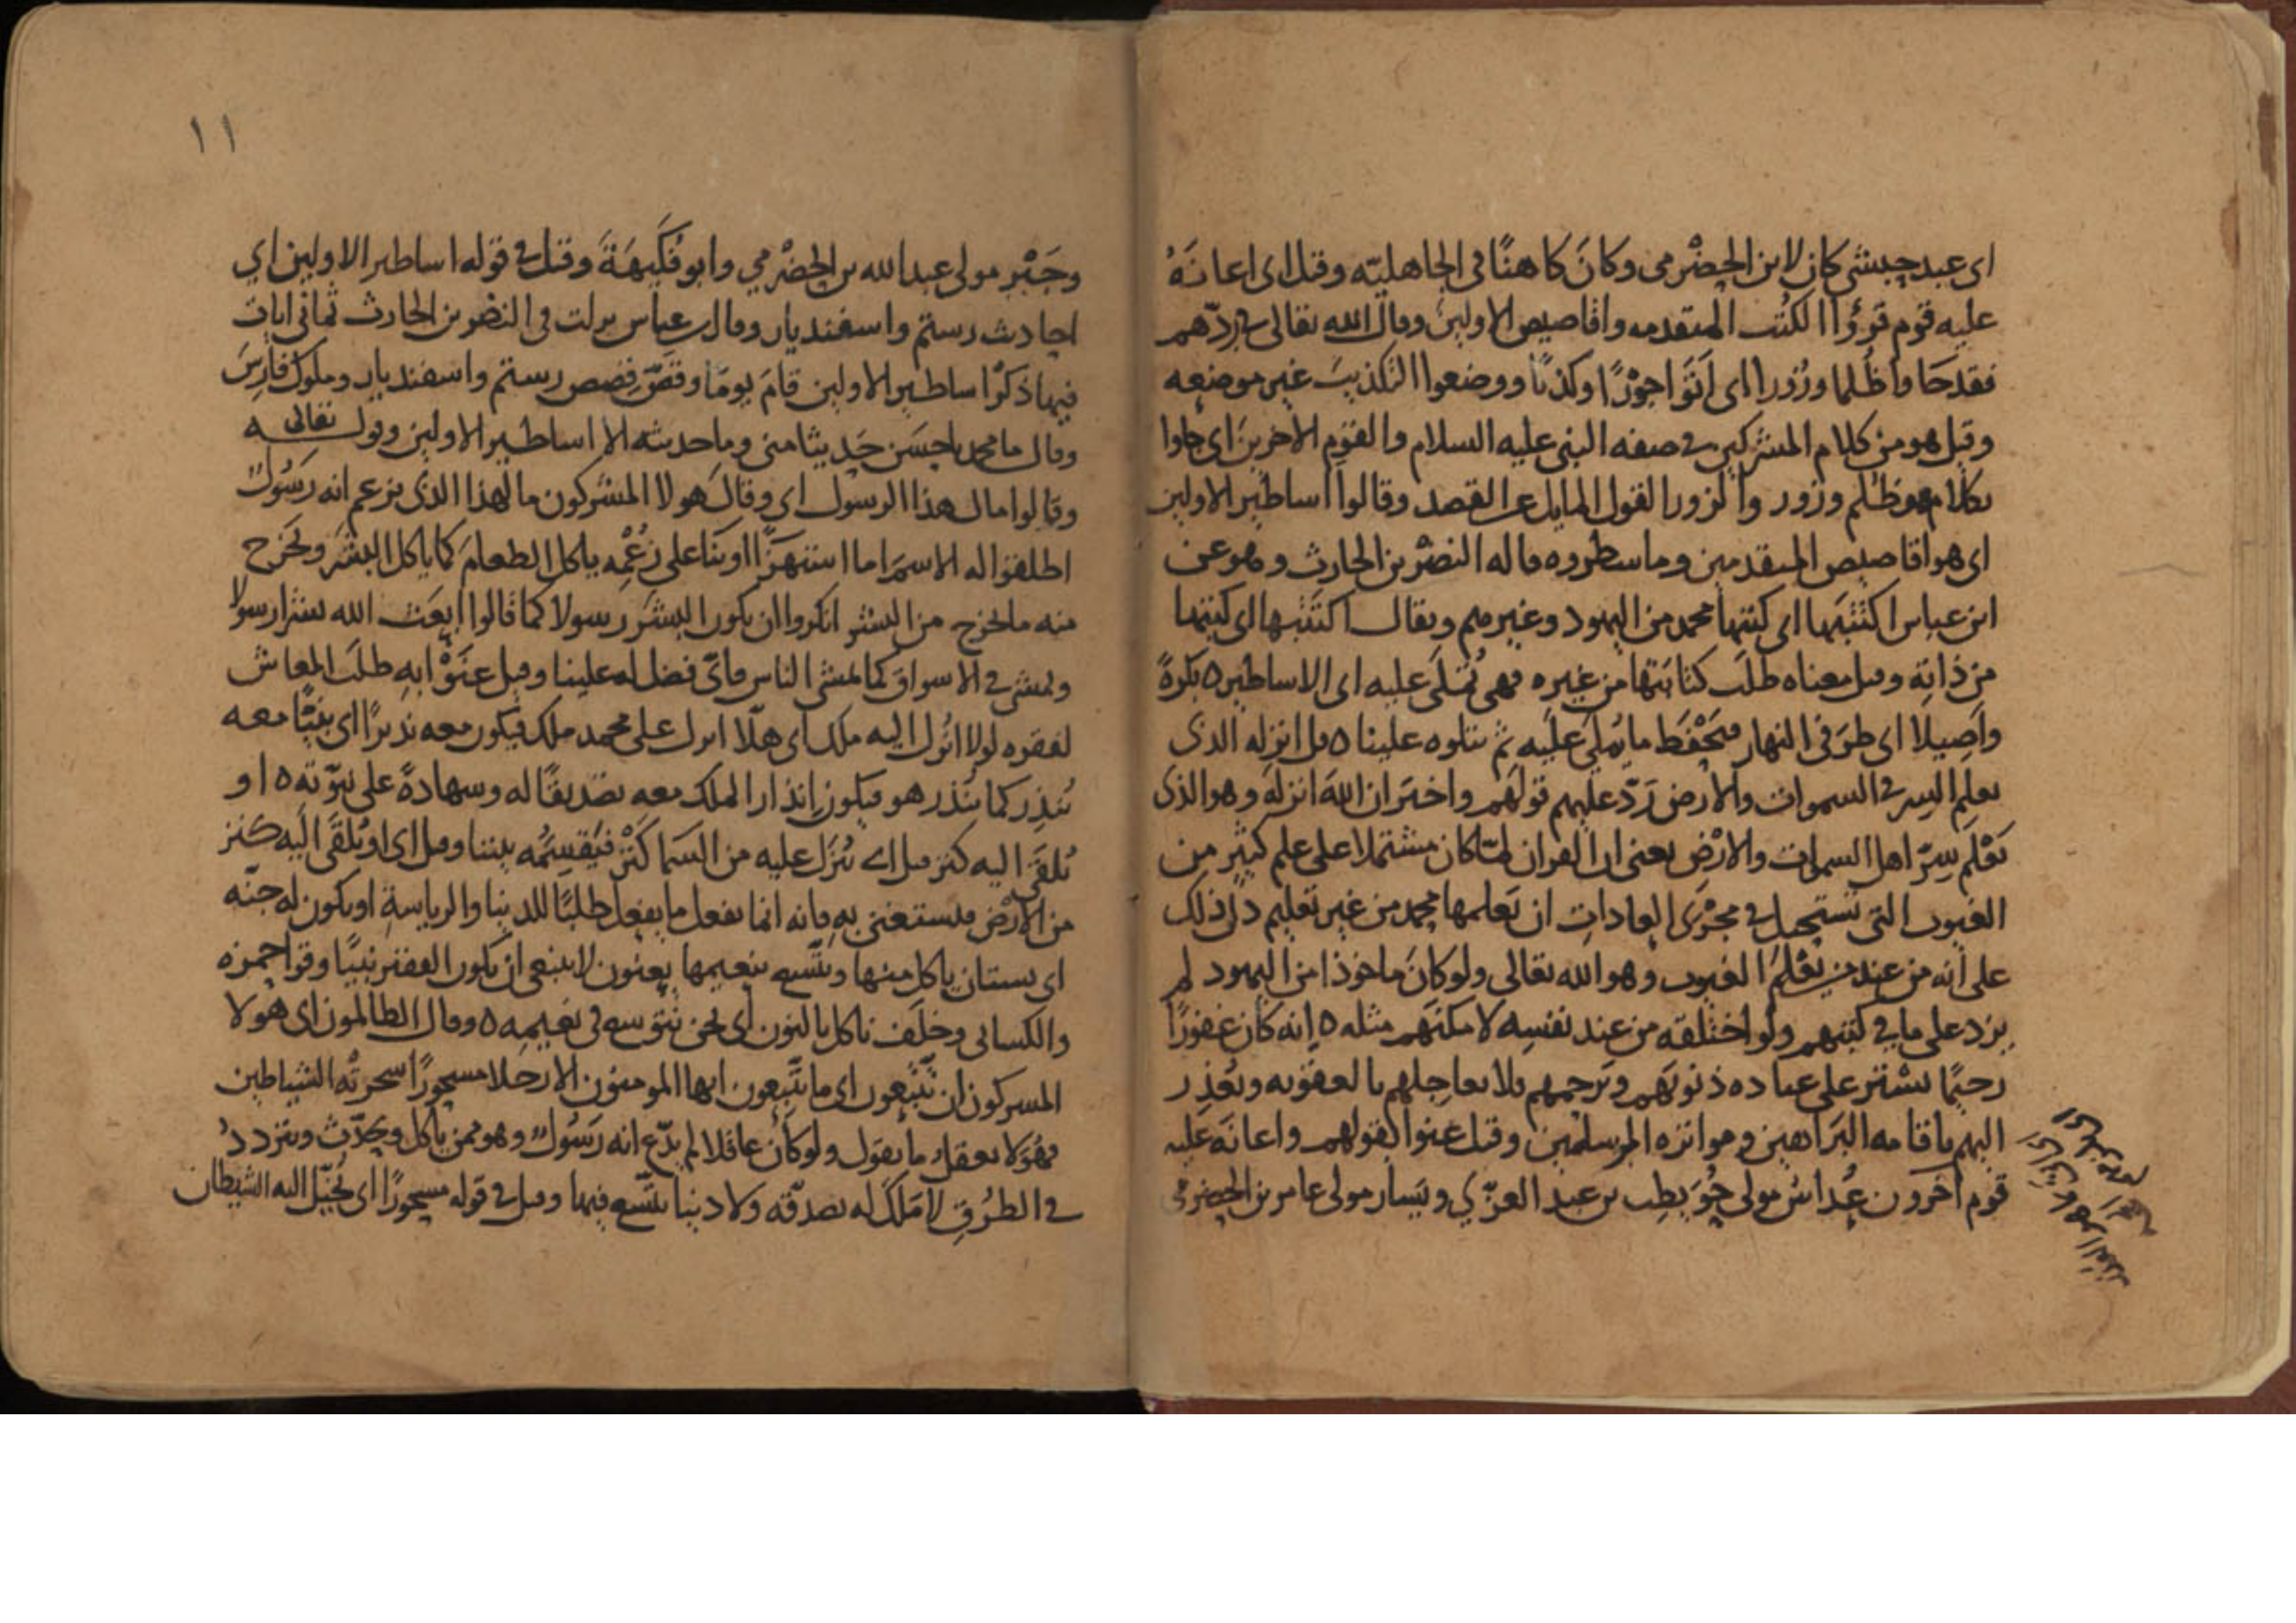 اى عبد حبشي كان لابن الحضْرمى وكانَ كاهنًا فى الجاهليّه وقيل اى اعانَهُ
عليه قوم قرؤا الكتُب المتقدمه واقاصيص الاولين وقال الله تعالى فى ردّهم
فقد جاوا ظُلما وزُورا اى اتَوا جوْرًا وكذبًا ووضعوا التكذيبَ غير موضعه
وقيل هو من كلام المشركين فى صفه النبى عليه السلام والقوم الآخرينَ اى جاوا
بكلام هو ظلم وزور والزور القول المايل عن القصد وقالوا اساطير الاولين
اى هو اقاصيص المتقدمين وما سطروه قاله النضْر بن الحارث وهو عن
ابن عباس اكتتبَها اى كتبها محمد من اليهود وغيرهم ويقال اكتتبها اى كتبها
من ذاتِه وقيل معناه طلَب كتابتها من غيره فهى تُملَى عليه اى الاساطير ٥ بكرةً
واصيلا اى طرَفى النهار فيَحْفَظ ما يُملَى عليه ثم يتلوه علينا ٥ قل انزله الذى
يعلم السر فى السموات والارض رَدّ عليهم قولَهم واخبَر ان اللهَ انزلَه وهو الذى
يَعْلَم سِرّ اهل السموات والارْض يعنى ان القران لمّا كان مشتملا على علم كثير من
الغيوب التى تستحيل فى مجْرَى العاداتِ ان يَعلمها محمد من غير تعليم دلّ ذلك
على انه من عند من يعْلَم الغيوب وهو الله تعالى ولو كانَ ماخوذا من اليهود لم
يزد على ما فى كتبهم ولو اختلقه من عند نفسِه لامكنَهم مثله ٥ انه كان غفورًا
رحيمًا يسْتر على عباده ذنوبَهم ويَرحمهم فلا يعاجلهم بالعقوبه ويُعْذِر
اليهم باقامه البَراهين ومواتره المرسلِين وقيل عنوا بقولهم واعانَه عليه
قوم آخرون عُداسٌ مولى حُوَيطِب بن عبد العزّي ويَسار مولى عامر بن الحضرمى
١١
وجَبْر مولى عبد الله بن الحضْرمي وابو فُكَيهَةَ وقيل فى قوله اساطير الاولين اي
احاديث رستم واسفنديار وقال ابن عباس نزلت فى النضر بن الحارث ثمانى ايات
فيها ذكرُ اساطير الاولين قامَ يومًا وقصّ قِصص رستم واسفنديار وملوك فارِسَ
وقال ما محمد باحسَن حَديثا منى وما حديثه الا اساطير الاولين وقوله تعالى
وقالوا مال هذا الرسول اى وقال هولا المشركون ما لهذا الذى يزعم انه رَسُولٌ
اطلقوا له الاسمَ اما استهزًا او بنَا على زُعْمِه ياكل الطعامَ كما ياكل البشَر ويَخرج
منه ما يخرج من البشر انكروا ان يكون البشَر رسولا كما قالوا ابعَث الله بشرا رسولا
ويمشى فى الاسواق كما يمشى الناس فاىّ فضل له علينا وقيل عنَوْا به طلَب المعاش
لفقره لولا انُزل اليه ملك اى هلّا انزل على محمد ملك فيكون معه نذيرًا اى نبيًّا معه
يُنذِر كما يُنذر هو فيكون إنذار الملك معه تصديقًا له وشهادةً على نبوّته ٥ او
يُلقَى اليه كنز قيل اى يُنزَل عليه من السَما كَنْز فيَقسِمُه بيننا وقيل اى او يُلقَى اليه كنز
من الارْض فيستغنى به فانه انما يفعل ما يفعل طلبًا للدينا والرياسةِ او يكون له جنّه
اى بستان ياكل منها ويتّسع بنعيمها يعنون لا ينبغى ان يكون الفقير نبيًا وقرا حمزه
والكسائى وخلَف ناكل بالنون اى نحن نتوسع فى نعيمه ٥ وقال الظالمون اى هولا
المشركون ان تتّبعون اى ما تتّبعون ايها المومنون الا رجلا مسحورًا سحرتْه الشياطين
فهو لا يعقل ما يقول ولو كان عاقلا لم يدّع انه رَسُولٌ وهو ممن ياكل ويحدّث ويتردد
فى الطُرُق لا مَلَكٌ له يصدّقه ولا دنيا يتّسع فيها وقيل فى قوله مسحورًا اى يُخيّل اليه الشيطان